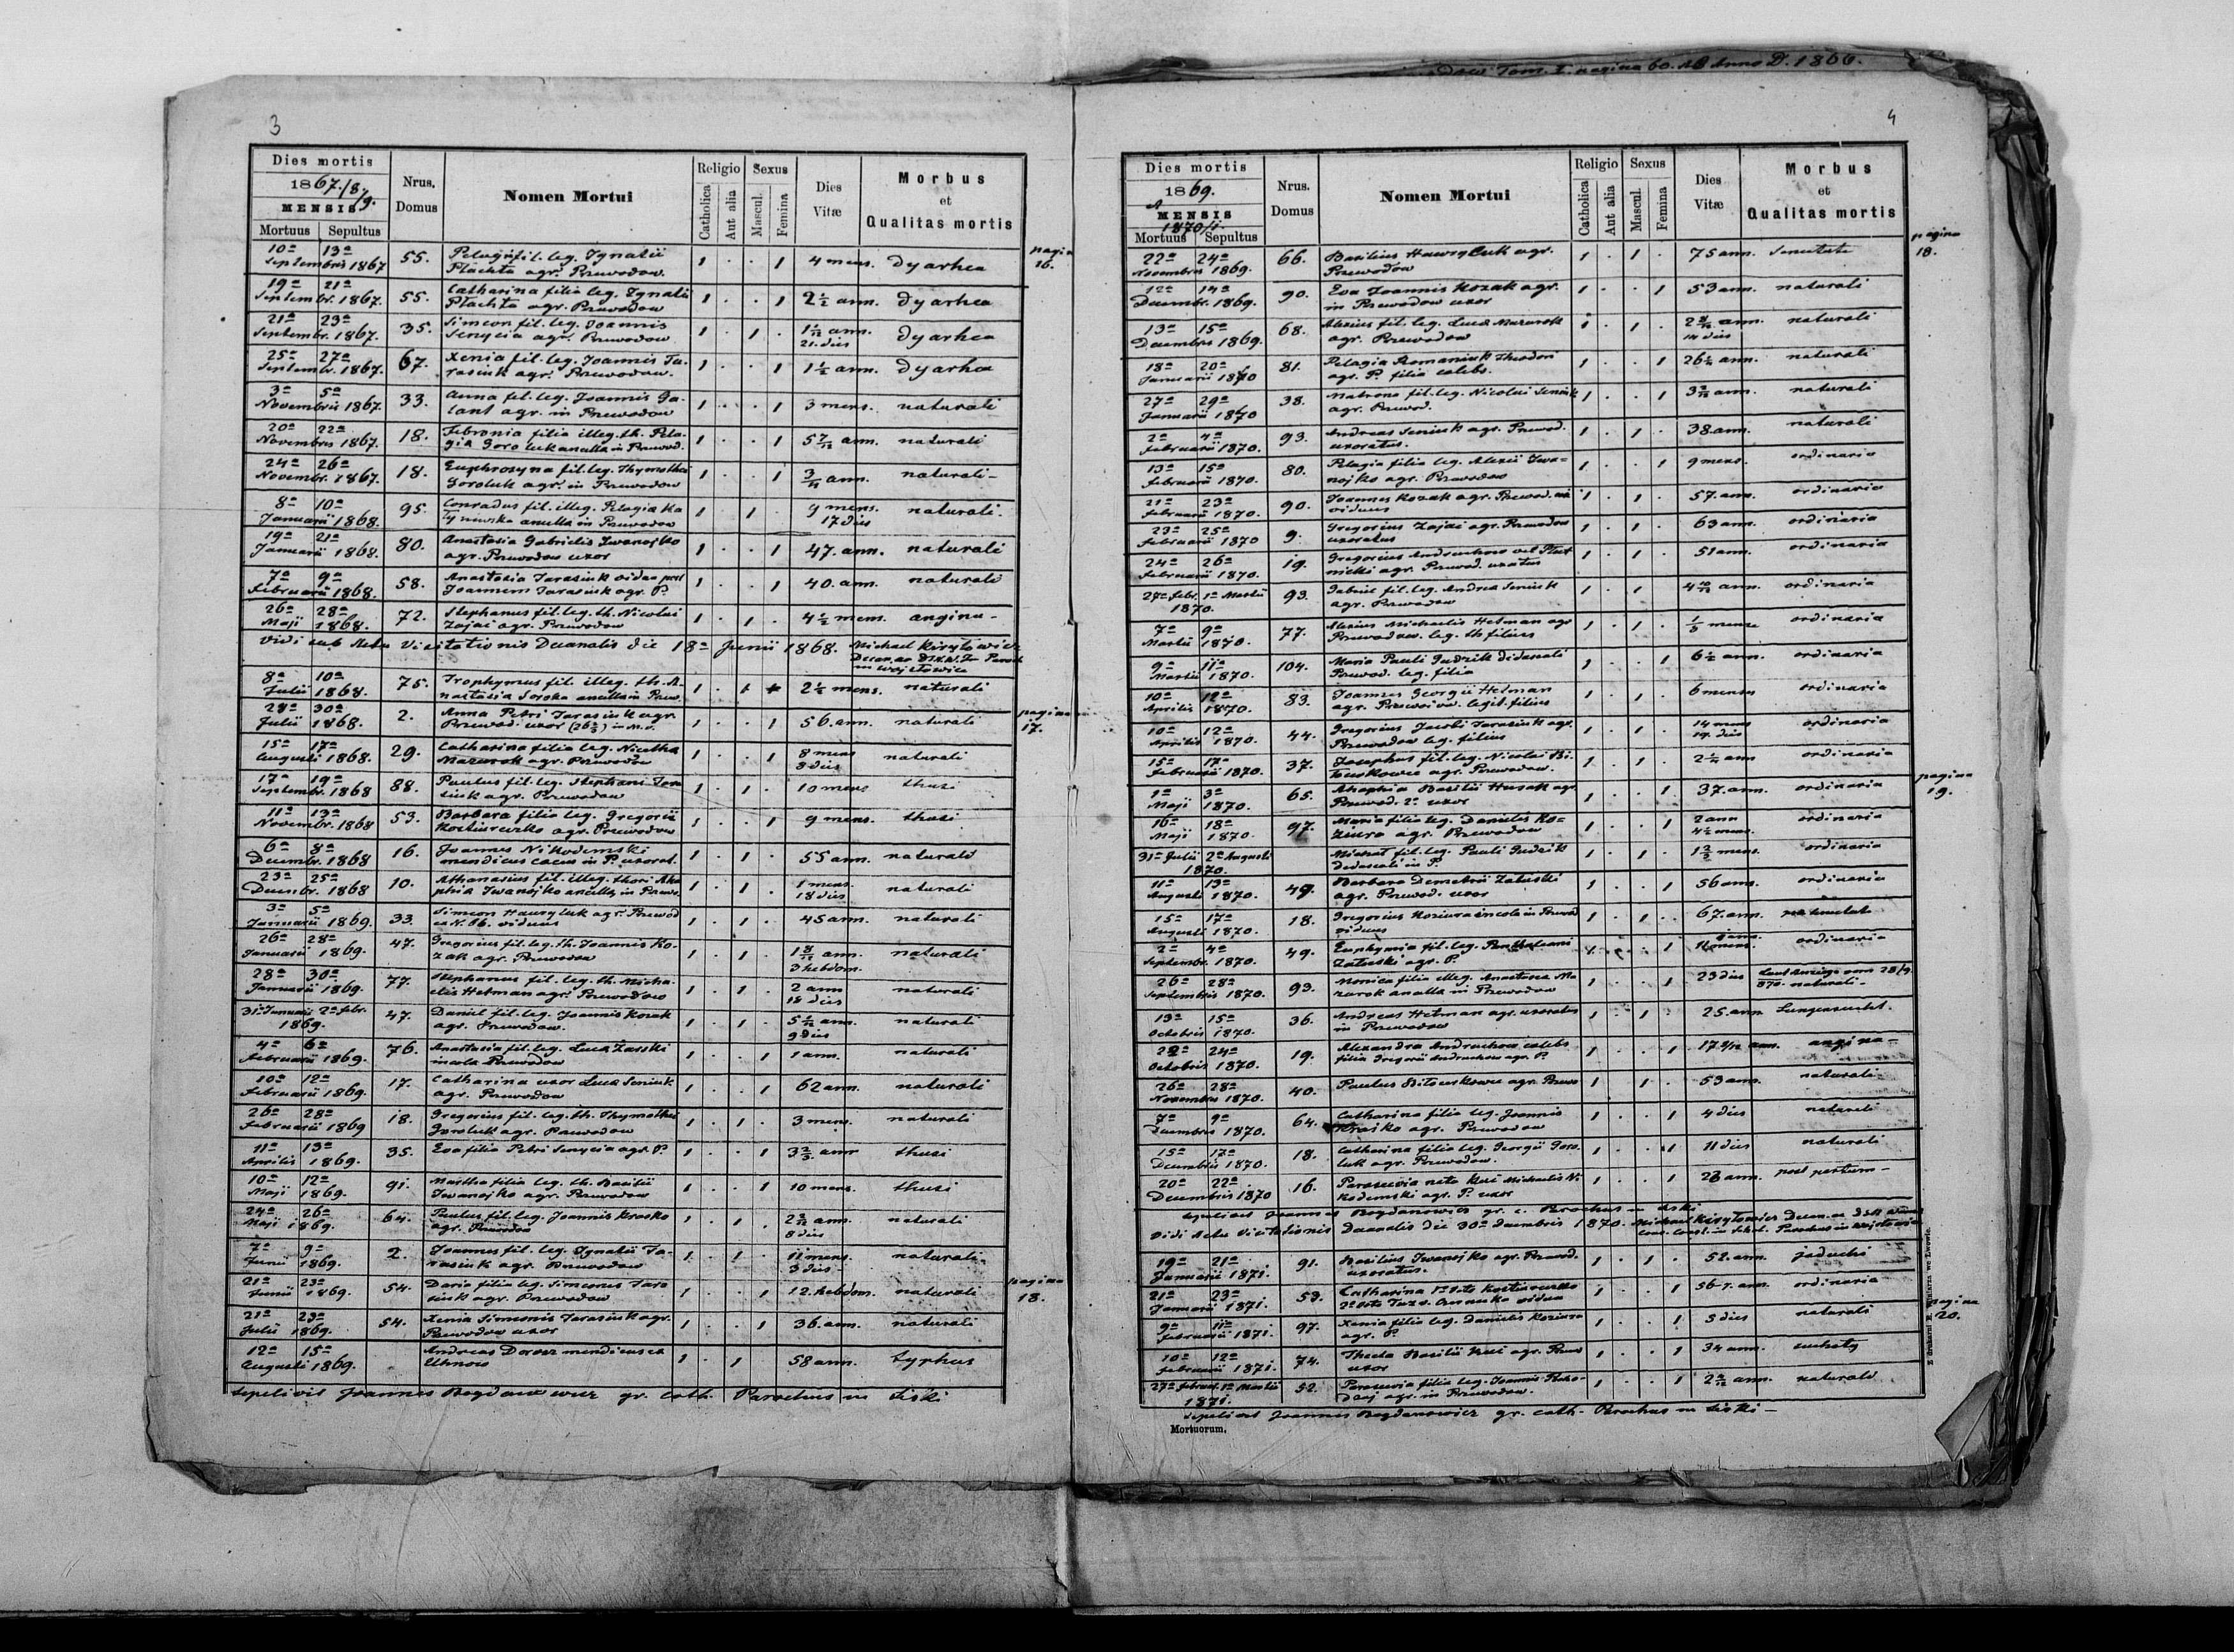 dow Tom. I. pagina 60. Anno D. 1866.
3
Dies mortis
1867/8/9.
MENSIS
Mortuus Sepultus
Nrus. Domus
Nomen Mortui
Religio
Catholica
Aut alia
Sexus
Mascul.
Femina
Dies Vitæ
Morbus et Qualitas mortis
10a 13a 55. Pelagia fil. leg. Ignatii 1 . . 1 4 mens. Dyarhea pagina 16.
Septembris 1867 Płachta agr. Przewodow.
19a 21a 55. Catharina filia leg. Ignatii 1 . . 1 2 1/2 ann. Dyarhea
Septembr. 1867. Płachta agr. Przewodow
21a 23a 35. Simeon fil. leg. Joannis 1 . 1 . 1 ann. Dyarhea
Septembr. 1867. Senycia agr. Przewodow 21. dies
25a 27a 67. Xenia fil. leg. Joannis Ta- 1 . . 1 1 1/2 ann. Dyarhea
Septemb. 1867. rasiuk agr. Przewodow.
3a 5a 33. Anna fil. leg. Joannis Ga- 1 . . 1 3 mens. naturali
Novembris 1867. lant agr. in Przewodow
20a 22a 18. Febronia filia illeg. th. Pela- 1 . . 1 5 7/12 ann. naturali
Novembris 1867. gia Goroluk ancilla in Przewod.
24a 26a 18. Euphrosyna fil. leg. Thymothei 1 . . 1 ann. naturali
Novembr. 1867. Goroluk agr. in Przewodow
8a 10a 95. Conradus fil. illeg. Pelagia Ka 1 . 1 . 9 mens. naturali.
Januarii 1868. ancilla in Przewodow 17 dies
19a 21a 80. Anastasia Gabrielis Iwanejko 1 . . 1 47. ann. naturali
Januarii 1868. agr. Przewodow uxor
7a 9a 58. Anastasia Tarasiuk vidua post 1 . . 1 40. ann. naturali
Februarii 1868. Joannem Tarasiuk agr. P.
26a 28a 72. Stephanus fil. leg. th. Nicolai 1 . 1 . 4 1/2 mens. angina
Maji 1868. Zajac agr. Przewodow
Vidi sub Actu Visitationis Decanalis die 18a Junii 1868. Michael Kiryłowicz
in Wojsławice
8a 10a 75. Trophymus fil. illeg. th. A- 1 . 1 2 1/2 mens. naturali
Julii 1868. nastasia Soroka ancilla in Przew.
28a 30a 2. Anna Petri Tarasiuk agr. 1 . . 1 56. ann. naturali pagina 17.
Julii 1868. Przewod. uxor
15a 17a 29. Catharina filia leg. Nicetha 1 . . 1 8 mens naturali
Augusti 1868. Mazurok agr. Przewodow 8 dies
17a 19a 88. Paulus fil. leg. Stephani Tara 1 . 1 . 10 mens thusi
Septembr. 1868 siuk agr. Przewodow
11a 13a 53. Barbara filia leg. Gregorii 1 . . 1 9 mens. thusi
Novembr. 1868 agr. Przewodow
6a 8a 16. Joannes Nikodemski 1 . 1 . 55 ann. naturali
Decembr. 1868 mendicus caecus in P. uxorat.
23a 25a 10. Athanasius fil. illeg. thori Aha 1 . 1 . 1 mens. naturali
Decembr. 1868 phia Iwanejko ancilla in Przew. 18 dies
3a 5a 33. Simeon Hawryluk agr. Przewod 1 . 1 . 45 ann. naturali
Januarii 1869. viduus
26a 28a 47. Gregorius fil. leg. th. Joannis Ko- 1 . 1 . 1 8/12 ann. naturali
Januarii 1869. zak agr. Przewodow 3 hebdom.
28a 30a 77. Stephanus fil. leg. th. Micha- 1 . 1 . 2 ann naturali
Januarii 1869. elis Hetman agr. Przewodow 18 dies
31a Januarii 2a febr. 47. Daniel fil. leg. Joannis Kozak 1 . 1 . 5 ann. naturali
1869. agr. Przewodow. 9 dies
4a 6a 76. Anastasia fil. leg. Luca Zarski 1 . . 1 1 ann. naturali
Februarii 1869. incola Przewodow
10a 12a 17. Catharina uxor Luca Seniuk 1 . . 1 62 ann. naturali
Februarii 1869. agr. Przewodow
26a 28a 18. Gregorius fil. leg. th. Thymothei 1 . 1 . 3 mens. naturali
Februarii 1869 Goroluk agr. Przewodow
11a 13a 35. Eva filia Petri Senycia agr. P. 1 . . 1 3 2/3 ann thusi
Aprilis 1869.
10a 12a 91. Martha filia leg. th. Basilii 1 . . 1 10 mens. thusi
Maji 1869. Iwanejko agr. Przewodow
24a 26a 64. Paulus fil. leg. Joannis Krasko 1 . 1 . ann. naturali
Maji 1869. agr. Przewodow 8 dies
7a 9a 2. Joannes fil. leg. Ignatii Ta- 1 . 1 . 11 mens. naturali
Junii 1869. rasiuk agr. Przewodow 3 dies
21a 23a 54. Daria filia leg. Simeonis Tara 1 . . 1 12. hebdom. naturali pagina 18.
Junii 1869. siuk agr. Przewodow
21a 23a 54. Xenia Simeonis Tarasiuk agr. 1 . . 1 36. ann. naturali
Julii 1869. Przewodow uxor
12a 15a Andreas Dorosz mendicus ex 1 . 1 58 ann. typhus
Augusti 1869. Uhnow
Sepelivit Joannes Bogdanowicz gr. cath. Parochus in Liski
4
Dies mortis
1869.
MENSIS
1870/1.
Mortuus Sepultus
Nrus. Domus
Nomen Mortui
Religio
Catholica
Aut alia
Sexus
Mascul.
Femina
Dies Vitæ
Morbus et Qualitas mortis
22a 24a 66. Basilius Hawryluk agr. 1 . 1 . 75 ann. Senectute pagina 18.
Novembris 1869. Przewodow
12a 14a 90. Eva Joannis Kozak agr. 1 . . 1 53 ann. naturali
Decembr. 1869. in Przewodow uxor
13a 15a 68. Alexius fil. leg. Luca Mazurok 1 . 1 . ann. naturali
Decembris 1869. agr. Przewodow 14 dies
18a 20a 81. Pelagia Romaniuk Theodori 1 . . 1 26 ann. naturali
Januarii 1870 agr. P. filia celebs.
27a 29a 38. Matrona fil. leg. Nicolai Seniuk 1 . . 1 ann. naturali
Januarii 1870 agr. Przewod.
2a 4a 93. Andreas Seniuk agr. Przewod. 1 . 1 . 38. ann. naturali
Februarii 1870. uxoratus.
13a 15a 80. Pelagia filia leg. Alexii Iwa= 1 . . 1 9 mens. ordinaria
Februarii 1870. nejko agr. Przewodow
21a 23a 90. Joannes Kozak agr. Przewod. 1 . 1 . 57. ann. ordinaria
Februarii 1870. viduus
23a 25a 9. Gregorius Zajac agr. Przewodow 1 . 1 . 63 ann. ordinaria
Februarii 1870 uxoratus
24a 26a 19. Gregorius Andruchow vel 1 . 1 . 51 ann. ordinaria
Februarii 1870. nicki agr. Przewod. uxoratus
27a Febr. 1a Martii 93. Gabriel fil. leg. Andrea Seniuk 1 . 1 4 10/12 ann. ordinaria
1870. agr. Przewodow
7a 9a 77. Alexius Michaelis Hetman agr 1 . 1 . mense ordinaria
Martii 1870. Przewodow. leg. th filius
9a 11a 104. Maria Pauli Gudzik didascali 1 . . 1 6 1/2 ann. ordinaria
Martii 1870. Przewod. leg. filia
10a 12a 83. Joannes Georgii Hetman 1 . 1 . 6 menses ordinaria
Aprilis 1870. agr. Przewodow. legit. filius
10a 12a 44. Gregorius Jacobi Tarasiuk agr. 1 . 1 . 14 mens ordinaria
Aprilis 1870. Przewodow leg. filius 19. dies
15a 17a 37. Josephus fil. leg. Nicolai Bi- 1 . 1 . ann ordinaria
Februarii 1870. agr. Przewodow.
1a 3a 65. Ahaphia Basilii Husak agr. 1 . . 1 37. ann. ordinaria pagina 19.
Maji 1870. Przewod. 2a uxor
16a 18a 97. Maria filia leg. Danielis Ko- 1 . . 1 2 ann ordinaria
Maji 1870. ziura agr. Przewodow 4 1/2 mens.
31a Julii 2a Augusti Michael fil. leg. Pauli Gudzik 1 . 1 . 1 2/3 mens. ordinaria
1870. didascali in P.
11a 13a 49. Barbara Demetrii Załuski 1 . . 1 56 ann. ordinaria
Augusti 1870. agr. Przewod. uxor
15a 17a 18. Gregorius Koziura incola in Przewod 1 . 1 . 67. ann.
Augusti 1870. viduus
2a 4a 49. Euphymia fil. leg. Panthaleoni 1 . . 1 11 mens. ordinaria
Septembr. 1870. Załuski agr. P.
26a 28a 93. Monica filia illeg. Anastasia Ma 1 . . 1 23 dies Laut Anzeige vom 28/9.
Septembris 1870. zurok ancilla in Przewodow 870. naturali
13a 15a 36. Andreas Hetman agr. uxoratus 1 . 1 25. ann Lungensucht.
Octobris 1870. in Przewodow
22a 24a 19. Alexandra Andruchow celebs 1 . . 1 17 9/12 ann. angina
Octobris 1870. filia Gregorii Andruchow agr. P.
26a 28a 40. Paulus agr. Przew 1 . 1 . 53 ann. naturali
Novembris 1870.
7a 9a 64. Catharina filia leg. Joannis 1 . . 1 4 dies naturali
Decembris 1870. Krasko agr. Przewodow
15a 17a 18. Catharina filia leg. Georgii Goro 1 . . 1 11 dies naturali
Decembris 1870. luk agr. Przewodow.
20a 22a 16. Parascevia nata Kuc Michaelis Ni 1 . . 1 23 ann. post partum
Decembris 1870 kodemski agr. P. uxor
Sepelivit Joannes Bogdanowicz gr. c. Parochus in Liski
Vidi Actu Visitationis decanalis die 30a decembris 1870. Michael Kiryłowicz Parochus in Wojsławice
19a 21a 91. Basilius Iwanejko agr. Przewod. 1 . 1 . 52. ann. paduchi
Januarii 1871. uxoratus.
21a 23a 53. Catharina 1o voto 1 . . 1 56 ann. ordinaria
Januarii 1871. 2o voto vidua
9a 11a 97. Xenia filia leg. Danielis Koziura 1 . . 1 5 dies naturali pagina 20.
Februarii 1871. agr. P.
10a 12a 74. Thecla Basilii Kuc agr. Przew 1 . . 1 34 ann. suchoty
Februarii 1871. uxor
27a februar. 1a Martii 52. Parascevia filia leg. Joannis 1 . . 1 ann. naturali
1871. agr. in Przewodow.
Sepelivit Joannes Bogdanowicz gr. cath. Parochus in Liski
Mortuorum.
Z drukarni E. Winiarza we Lwowie.